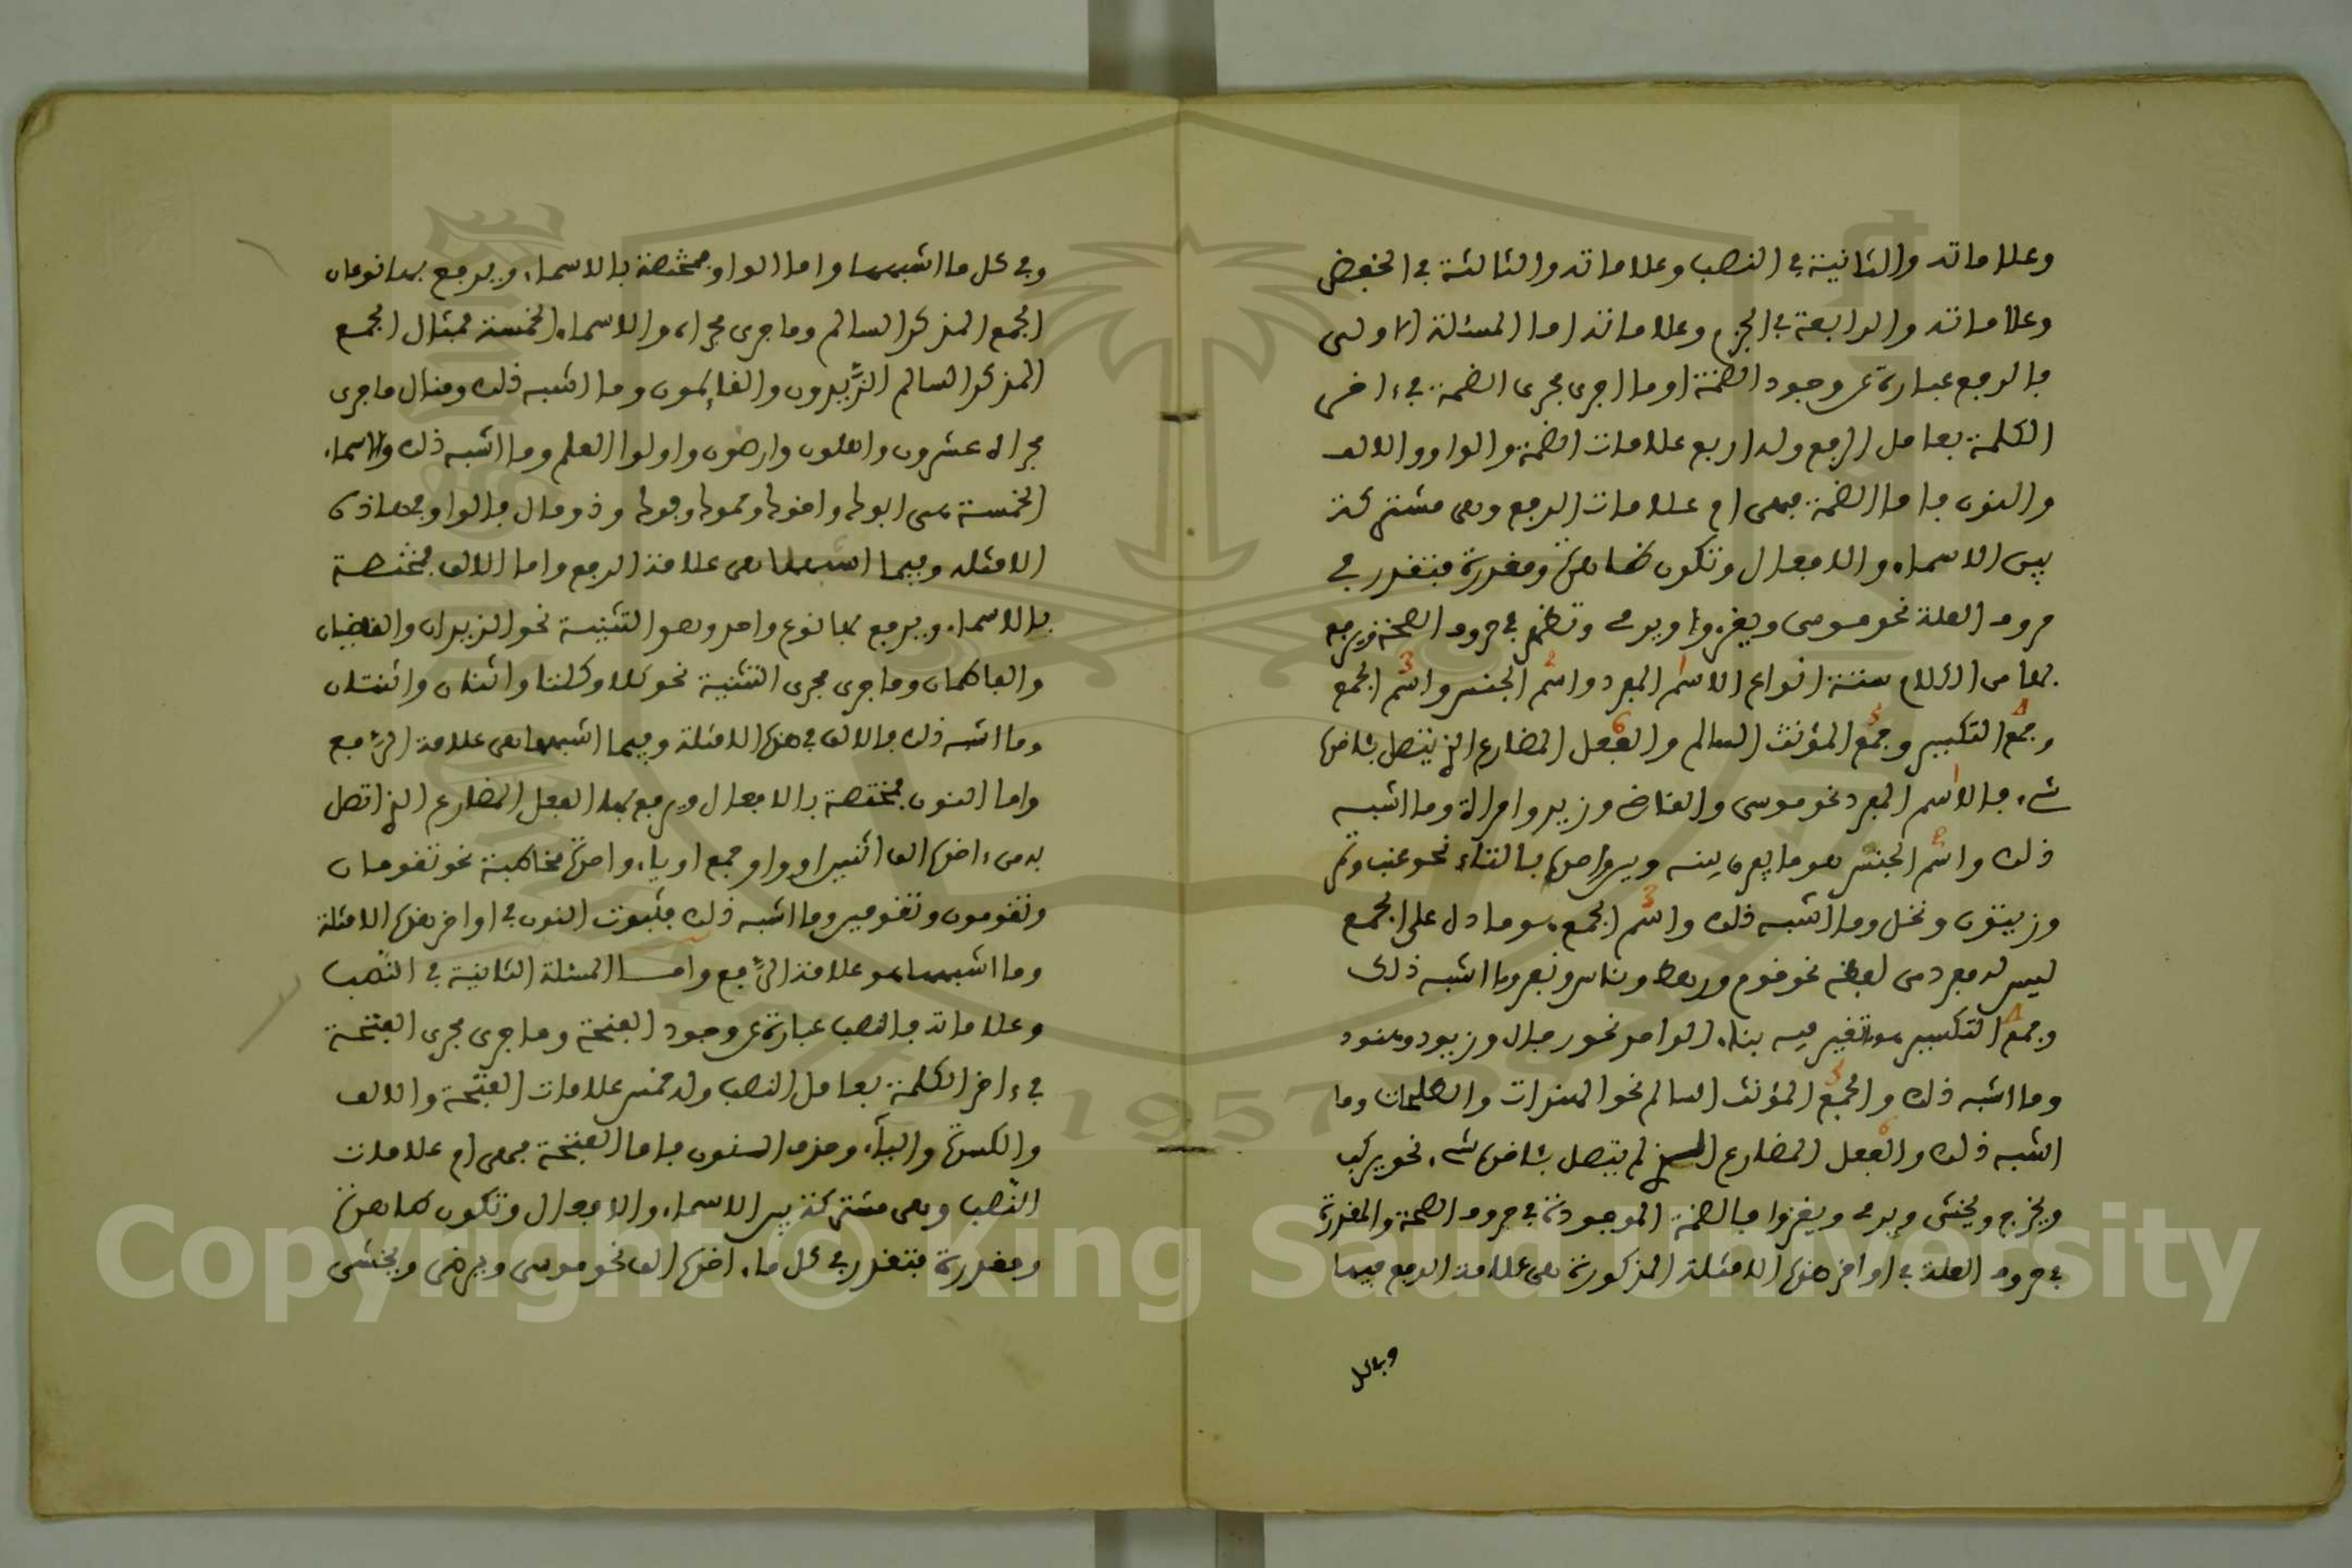 وعلاماته والثانية في النصب وعلاماته والثالثة في الخفض
وعلاماته والرابعة في الجزم وعلاماته اما المسئلة الاولى
فالرفع عبارة عن وجود الضمة او ما اجرى مجرى الضمة في ءاخر
الكلمة بعامل الرفع وله اربع علامات الضمة والواو والالف
والنون فاما الضمة فهي ام علامات الرفع وهي مشتركة
بين الاسماء والافعال وتكون ظاهرة ومقدرة فتقدر في
حروف العلة نحو موسى ويغزوا ويرمي وتظهر في حروف الصحة ويرفع
بها من الكلام ستة انواع الاسم المفرد واسم الجنس واسم الجمع
وجمع التكسير وجمع المؤنث السالم والفعل المضارع الذي يتصل بئاخره
شيء فالاسم المفرد نحو موسى والقاضي وزيد وامراة وما اشبه
ذلك واسم الجنس هو ما يفرق بينه وبين واحده بالتاء نحو عنب وتمر
وزيتون ونخل وما اشبه ذلك واسم الجمع هو ما دل على الجمع
ليس له مفرد من لفظه نحو قوم ورهط وناس ونفر وما اشبه ذلك
وجمع التكسير هو ما تغير فيه بناء الواحد نحو رجال وزيود وهنود
وما اشبه ذلك والجمع المؤنث السالم نحو الهندات والمسلمات وما
اشبه ذلك والفعل المضارع الذي لم يتصل بئاخره شيء نحو يركب
ويخرج ويخشى ويرمي ويغزوا فالضمة الموجودة في حروف الصحة والمقدرة
في حروف العلة في اواخر هذه الامثلة المذكورة هي علامة الرفع فيها
وفي كل
وفي كل ما اشبهها واما الواو فمختصة بالاسماء ويرفع بها نوعان
الجمع المذكر السالم وما جرى مجراه والاسماء الخمسة فمثال الجمع
المذكر السالم الزيدون والقايمون وما اشبه ذلك ومثال ما جرى
مجراه عشرون واهلون وارضون واولوا العلم وما اشبه ذلك والاسماء
الخمسة هي ابوك واخوك وحموك وفوك وذو مال فالواو في هاذه
الامثلة وفيما اشبهها هي علامة الرفع واما الالف فمختصة
بالاسماء ويرفع بها نوع واحد وهو التثنية نحو الزيدان والقاضيان
والفاطمان وما جرى مجرى التثنية نحو كلا وكلتا واثنان واثنتان
وما اشبه ذلك فالالف في هذه الامثلة وفيما اشبهها هي علامة الرفع
واما النون فمختصة بالافعال ويرفع بها الفعل المضارع الذي اتصل
به من ءاخره الف اثنين او واو جمع او ياء واحدة مخاطبة نحو تقومان
وتقومون وتقومين وما اشبه ذلك فثبوت النون في اواخر هذه الامثلة
وما اشبهها هو علامة الرفع واما المسئلة الثانية في النصب
وعلاماته فالنصب عبارة عن وجود الفتحة وما جرى مجرى الفتحة
في ءاخر الكلمة بعامل النصب وله خمس علامات الفتحة والالف
والكسرة والياء وحذف النون فاما الفتحة فهي ام علامات
النصب وهي مشتركة بين الاسماء والافعال وتكون ظاهرة
ومقدرة فتقدر في كل ما ءاخره الف نحو موسى ويرضى ويخشى
Copyright © King Saud University
1957